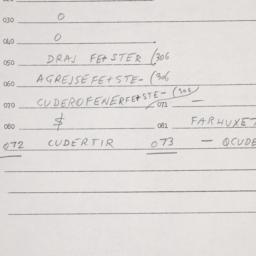 030 0
040 0
050 DRAJ FE*STER (306
060 AGREJSEFE*STE- (306
070 CUDEROFENERFE*STE- (306) 071 —
080 $ 081 FARHUXET
072 CUDERTIR 073 — QCUDE